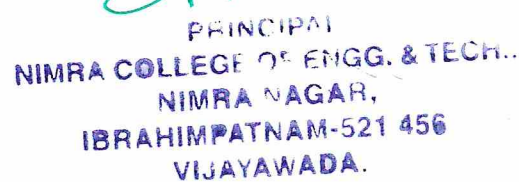 PRINCIPAL
NIMRA COLLEGE OF ENGG. & TECH..
NIMRA NAGAR,
IBRAHIMPATNAM-521 456
VIJAYAWADA.